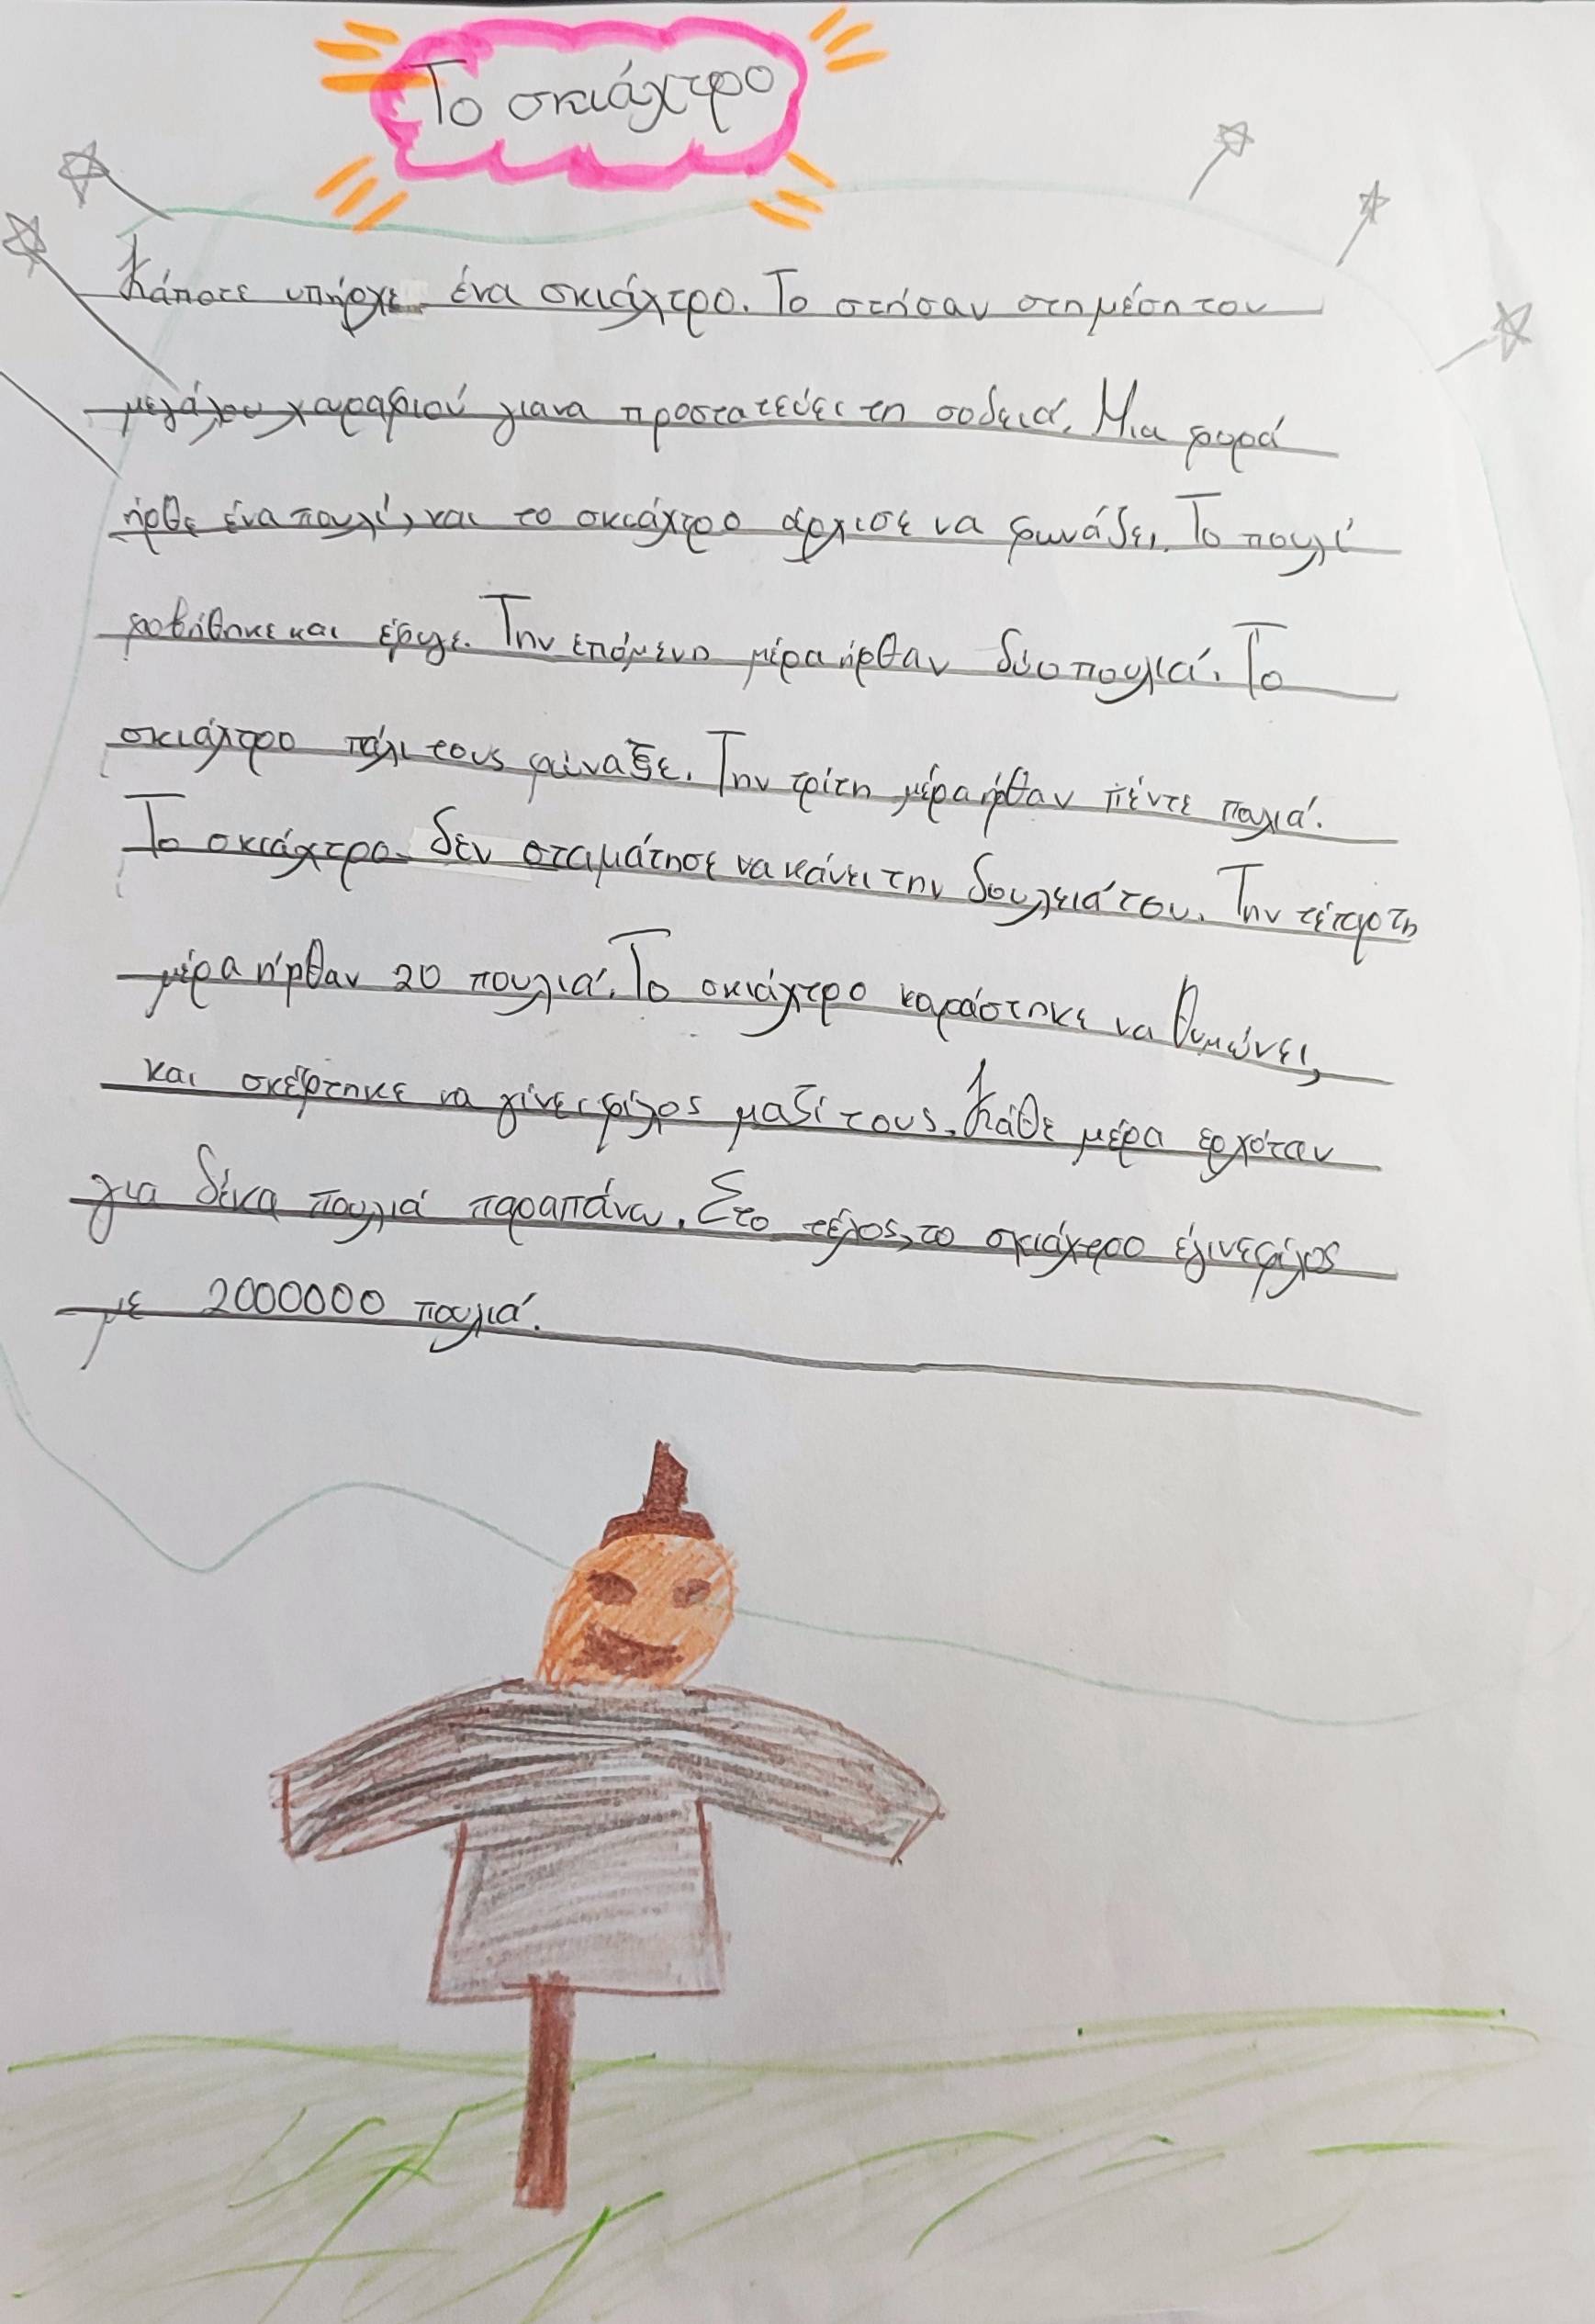 Το σκιάχτρο
Κάποτε υπήρχε ένα σκιάχτρο. Το στήσαν στη μέση του
μεγάλου χωραφιού για να προστατεύει τη σοδειά. Μια φορά
ήρθε ένα πουλί, και το σκιάχτρο άρχισε να φωνάζει. Το πουλί
φοβήθηκε και έφυγε. Την επόμενη μέρα ήρθαν δύο πουλιά. Το
σκιάχτρο πάλι τους φώναξε. Την τρίτη μέρα ήρθαν πέντε πουλιά.
Το σκιάχτρο δεν σταμάτησε να κάνει την δουλειά του. Την τέταρτη
μέρα ήρθαν 20 πουλιά. Το σκιάχτρο κοράστηκε να θυμώνει,
και σκέφτηκε να γίνει φίλος μαζί τους. Κάθε μέρα ερχόταν
για δέκα πουλιά παραπάνω. Στο τέλος, το σκιάχτρο έγινε φίλος
με 2000000 πουλιά.